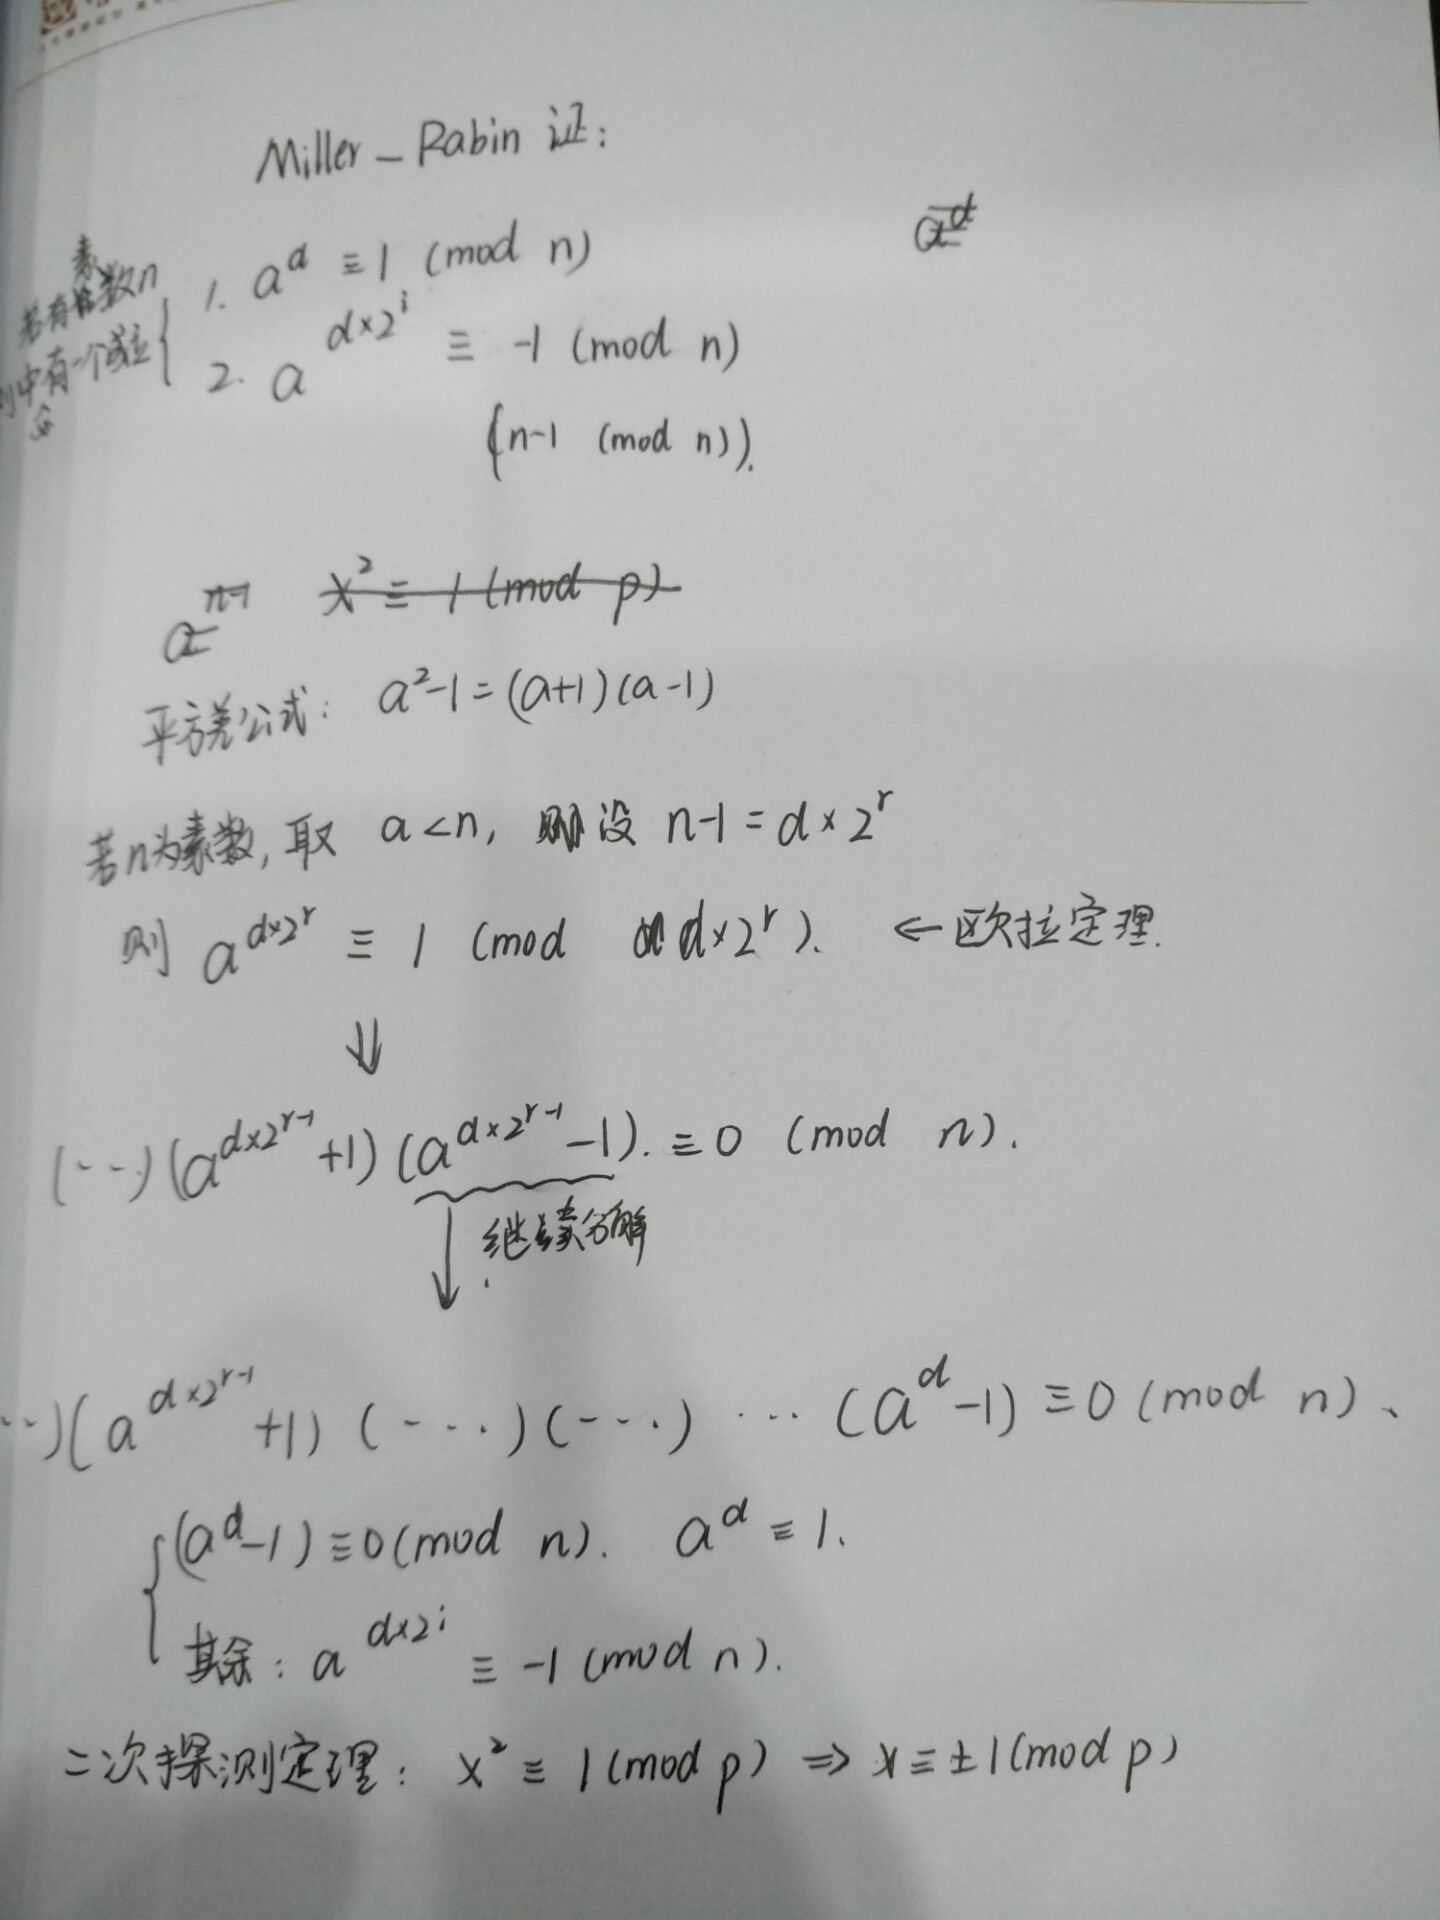 Miller-Rabin 证:
a^d
若有素数n
则中有一个成立
会
1. a^d ≡ 1 (mod n)
2. a^{d×2^i} ≡ -1 (mod n)
(n-1 (mod n)).
a^{n-1} x² ≡ 1 (mod p)
平方差公式: a²-1=(a+1)(a-1)
若n为素数,取 a<n, 则设 n-1=d×2^r
则 a^{d×2^r} ≡ 1 (mod d×2^r). ← 欧拉定理.
⇓
(···)(a^{d×2^{r-1}}+1)(a^{d×2^{r-1}}-1). ≡ 0 (mod n).
↓ 继续分解
··)(a^{d×2^{r-1}}+1)(····)(····) ··· (a^d-1) ≡ 0 (mod n)、
{(a^d-1) ≡ 0 (mod n). a^d ≡ 1.
其余: a^{d×2^i} ≡ -1 (mod n).
二次探测定理: x² ≡ 1 (mod p) ⇒ x ≡ ±1 (mod p)